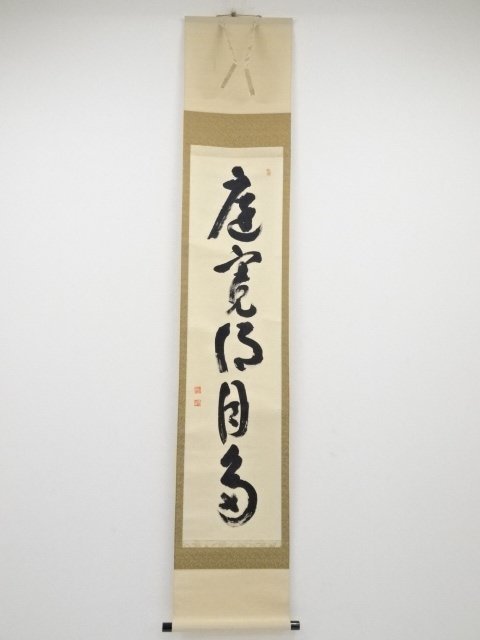 庭寛得月多